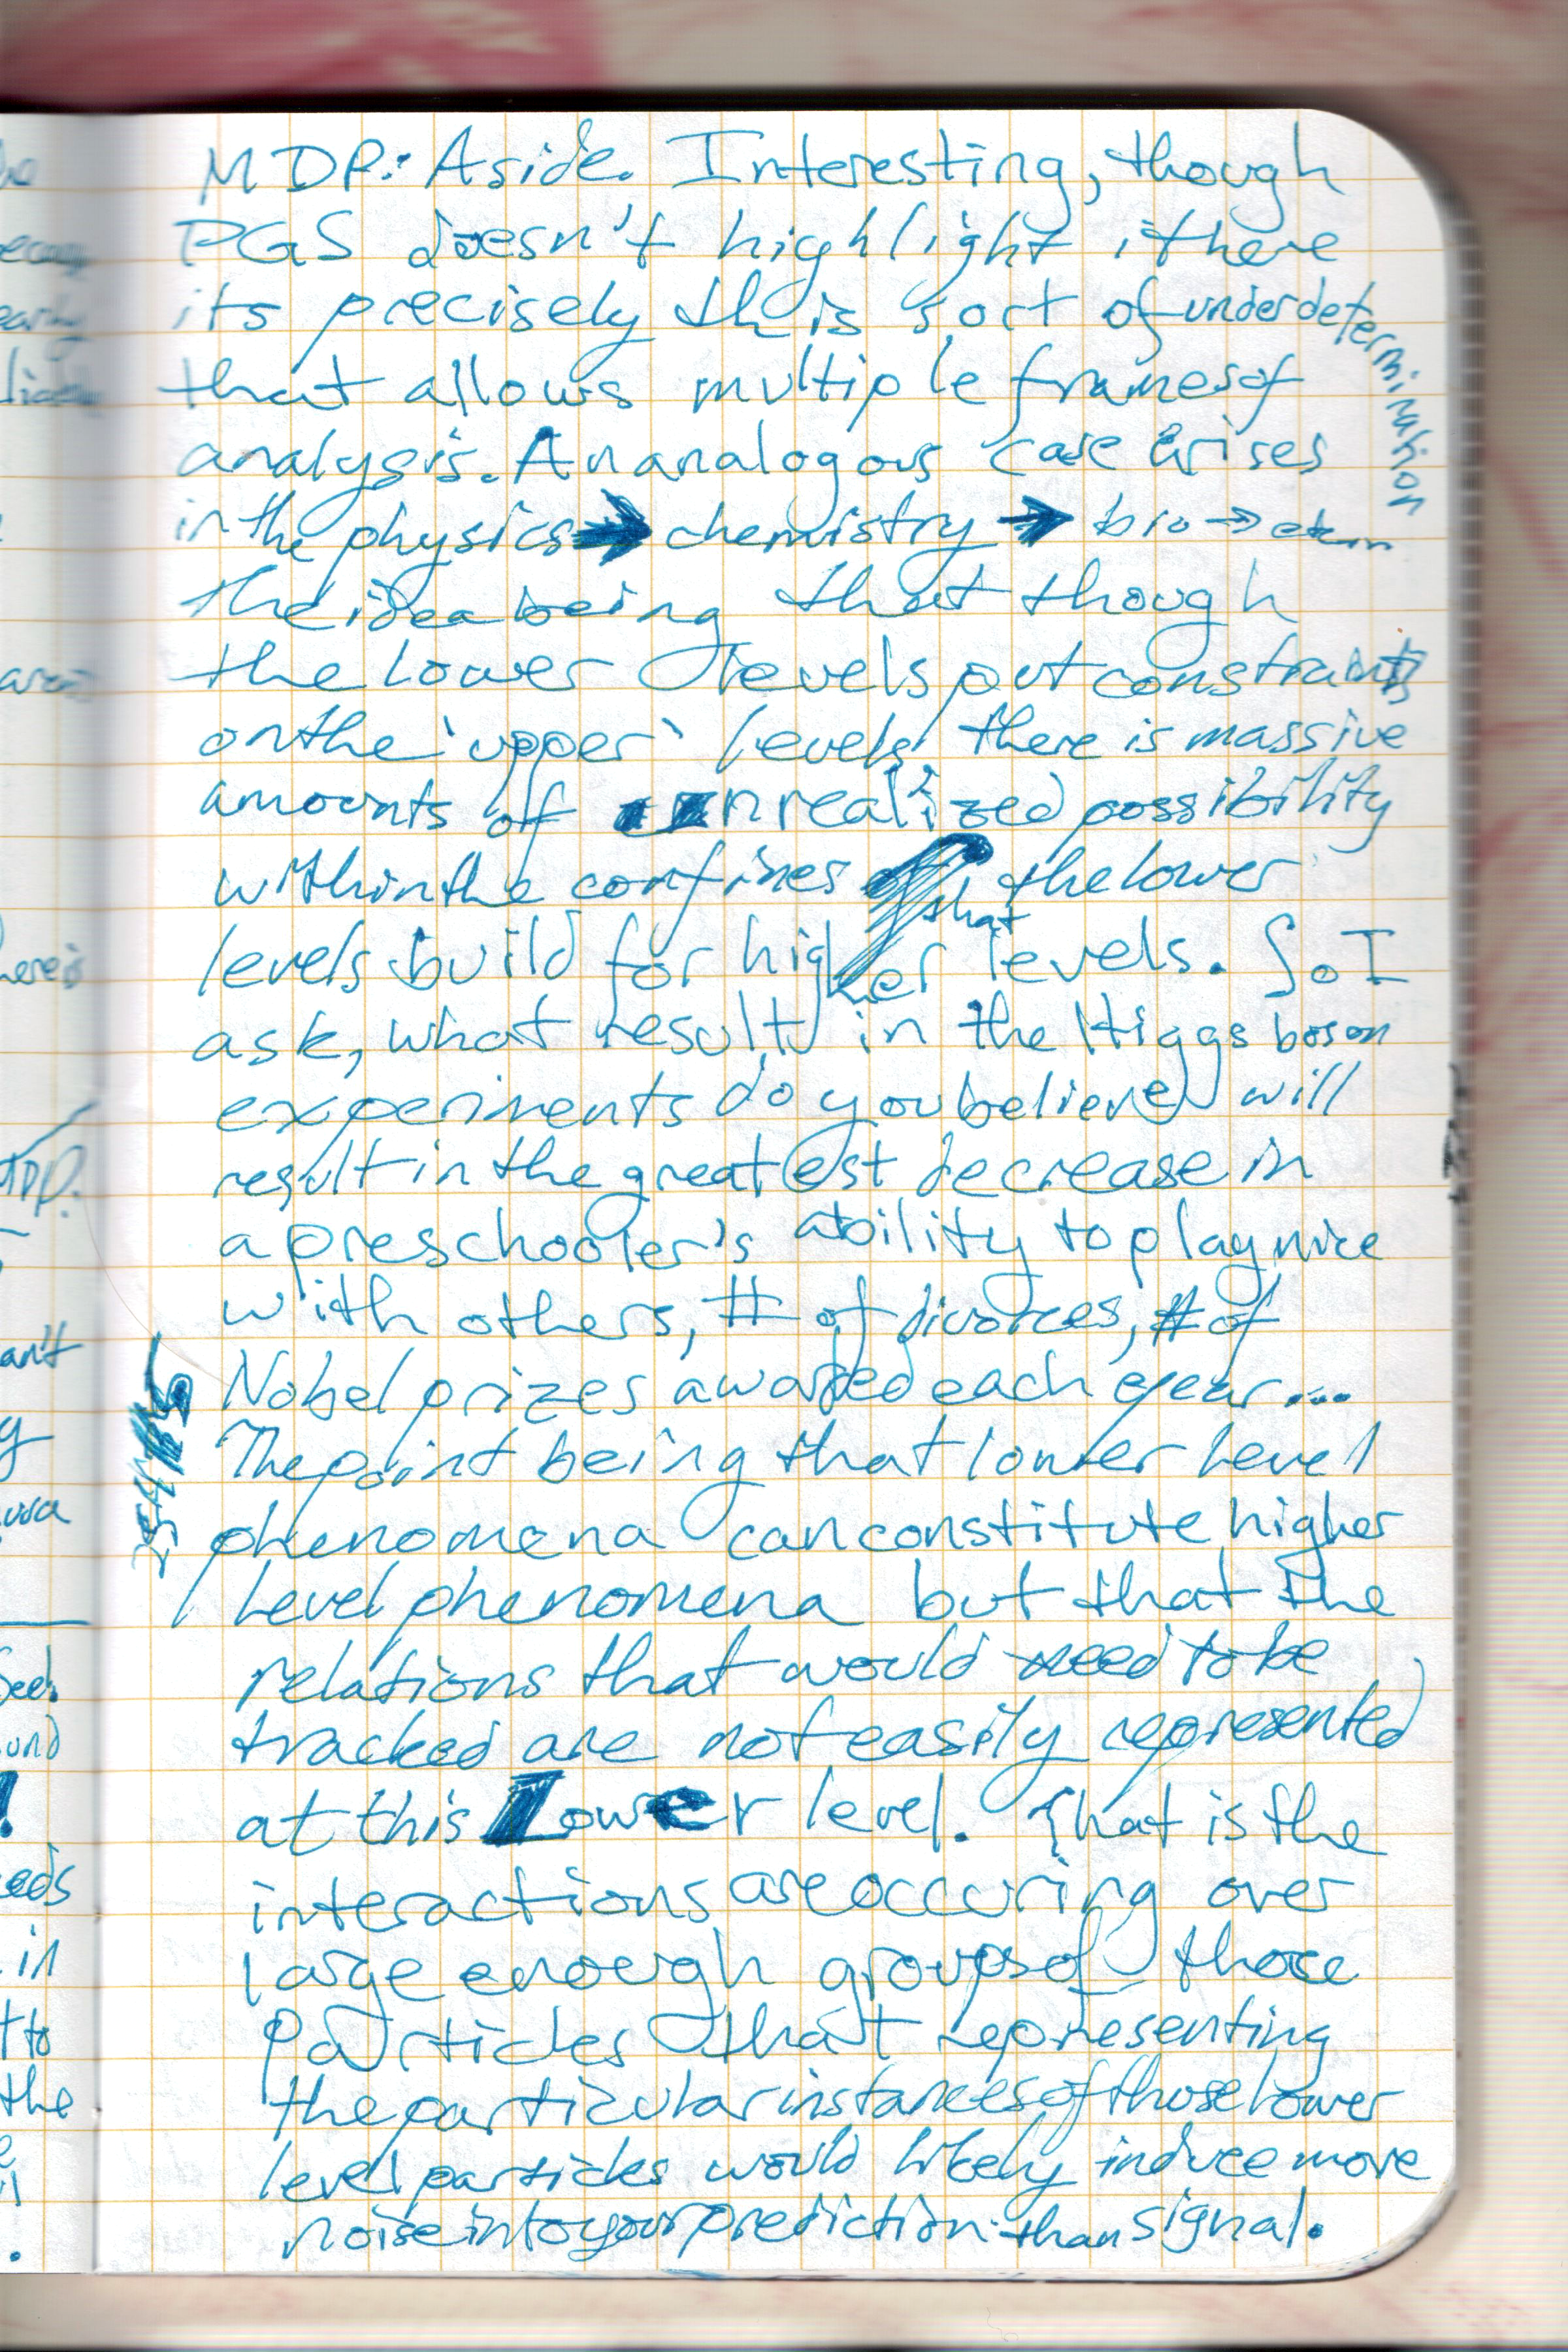 MDP: Aside. Interesting, though
PGS doesn't highlight it here
its precisely this sort of underdetermination
that allows multiple frames of
analysis. An analogous case arises
in the physics → chemistry → bio → etc
the idea being that though
the lower levels put constraints
on the 'upper' levels, there is massive
amounts of unrealized possibility
within the confines that the lower
levels build for higher levels. So I
ask, what results in the Higgs boson
experiments do you believe will
result in the greatest decrease in
a preschooler's ability to play nice
with others, # of divorces, # of
Nobel prizes awarded each year...
The point being that lower level
phenomena can constitute higher
level phenomena but that the
relations that would need to be
tracked are not easily represented
at this lower level. That is the
interactions are occuring over
large enough groups of those
particles that representing
the particular instances of those lower
level particles would likely induce more
noise into your prediction than signal.